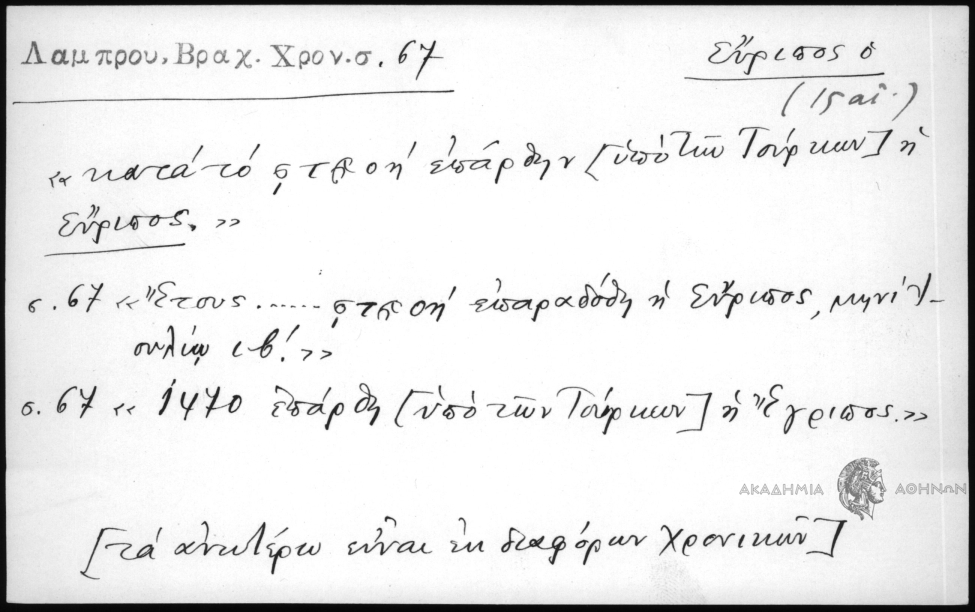 Λαμπρου, Βραχ. Χρον. σ. 67
Εὔριπος ὁ
(15 αἰ.)
«κατά τό ͵ϛϡοή ἐπάρθην [ὑπό τῶν Τούρκων] ἡ
Εὔριπος.»
σ. 67 «Ἔτους ...... ͵ϛϡοή ἐπαραδόθη ἡ Εὔριπος, μηνί Ἰ-
ουλίῳ ιβ΄.»
σ. 67 «1470 ἐπάρθη [ὑπό τῶν Τούρκων] ἡ Ἔγριπος.»
ΑΚΑΔΗΜΙΑ ΑΘΗΝΩΝ
[τά ἀνωτέρω εἶναι ἐκ διαφόρων χρονικῶν]